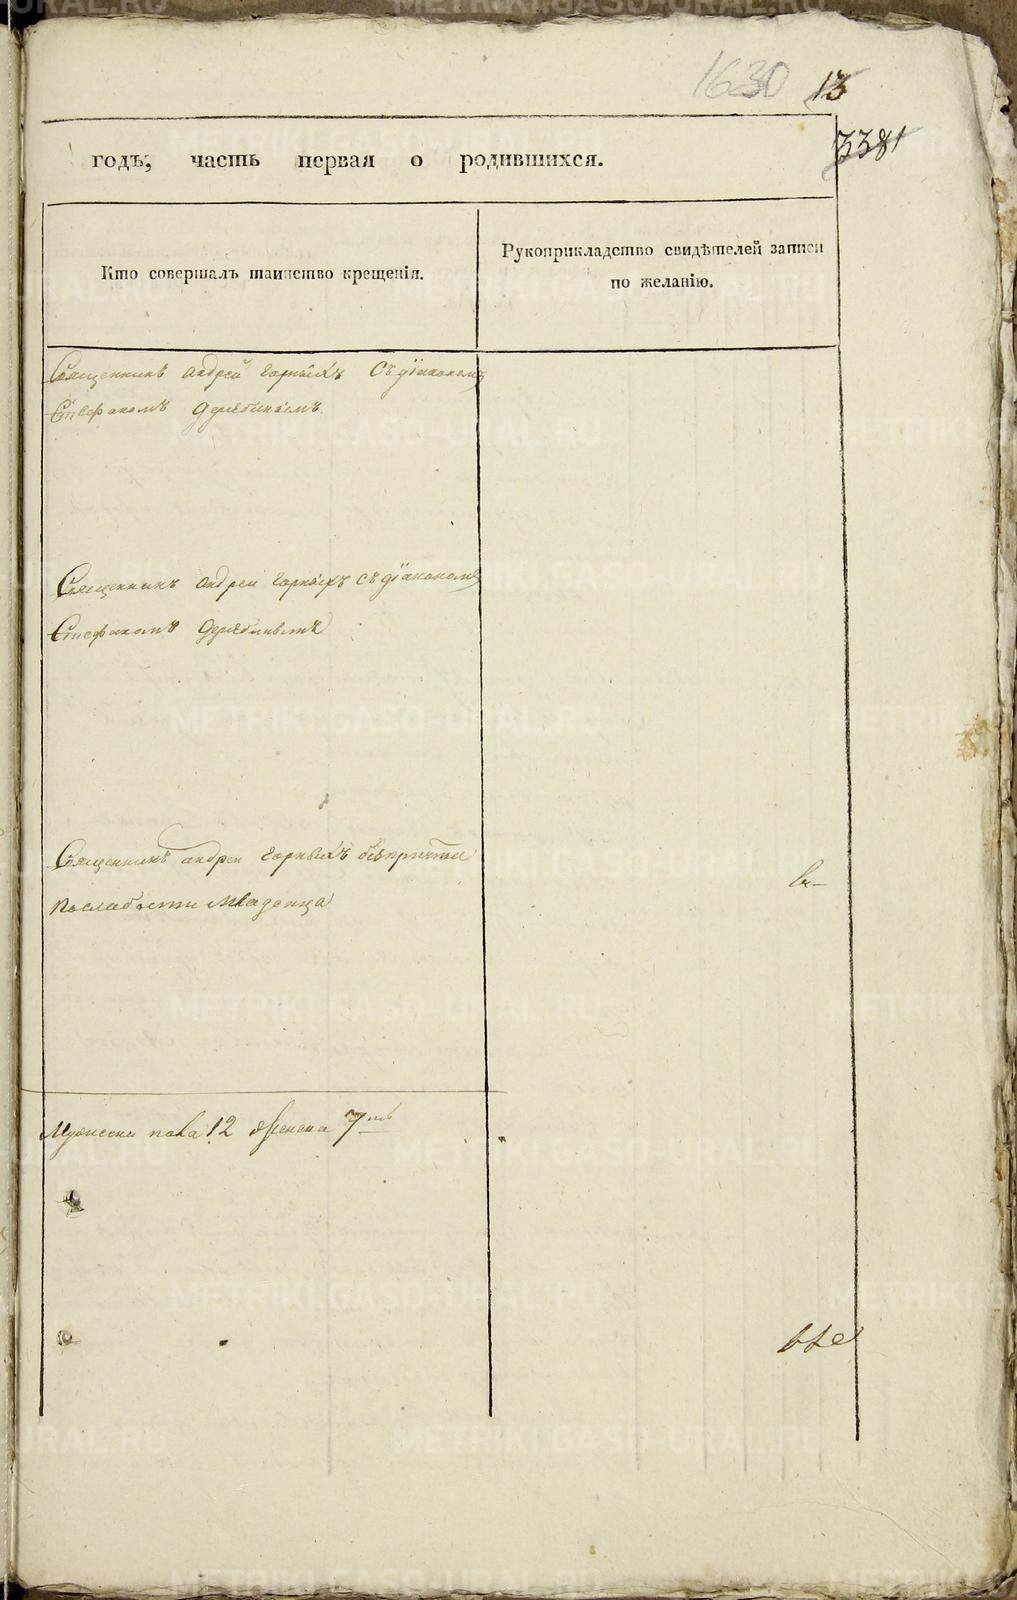 1630 13
3381
годъ, часть первая о родившихся.
Кто совершалъ таинство крещенія.
Рукоприкладство свидѣтелей записи
по желанію.
Священникъ андрей Горныхъ Съ діакономъ
Стефаномъ Дерябинымъ
Священникъ андреи Горныхъ съ діакономъ
Стефаномъ Дерябинымъ
Священникъ андреи Горныхъ безпричта
Послабости младенца
пола 12 женска 7
METRIKI.GASO-URAL.RU